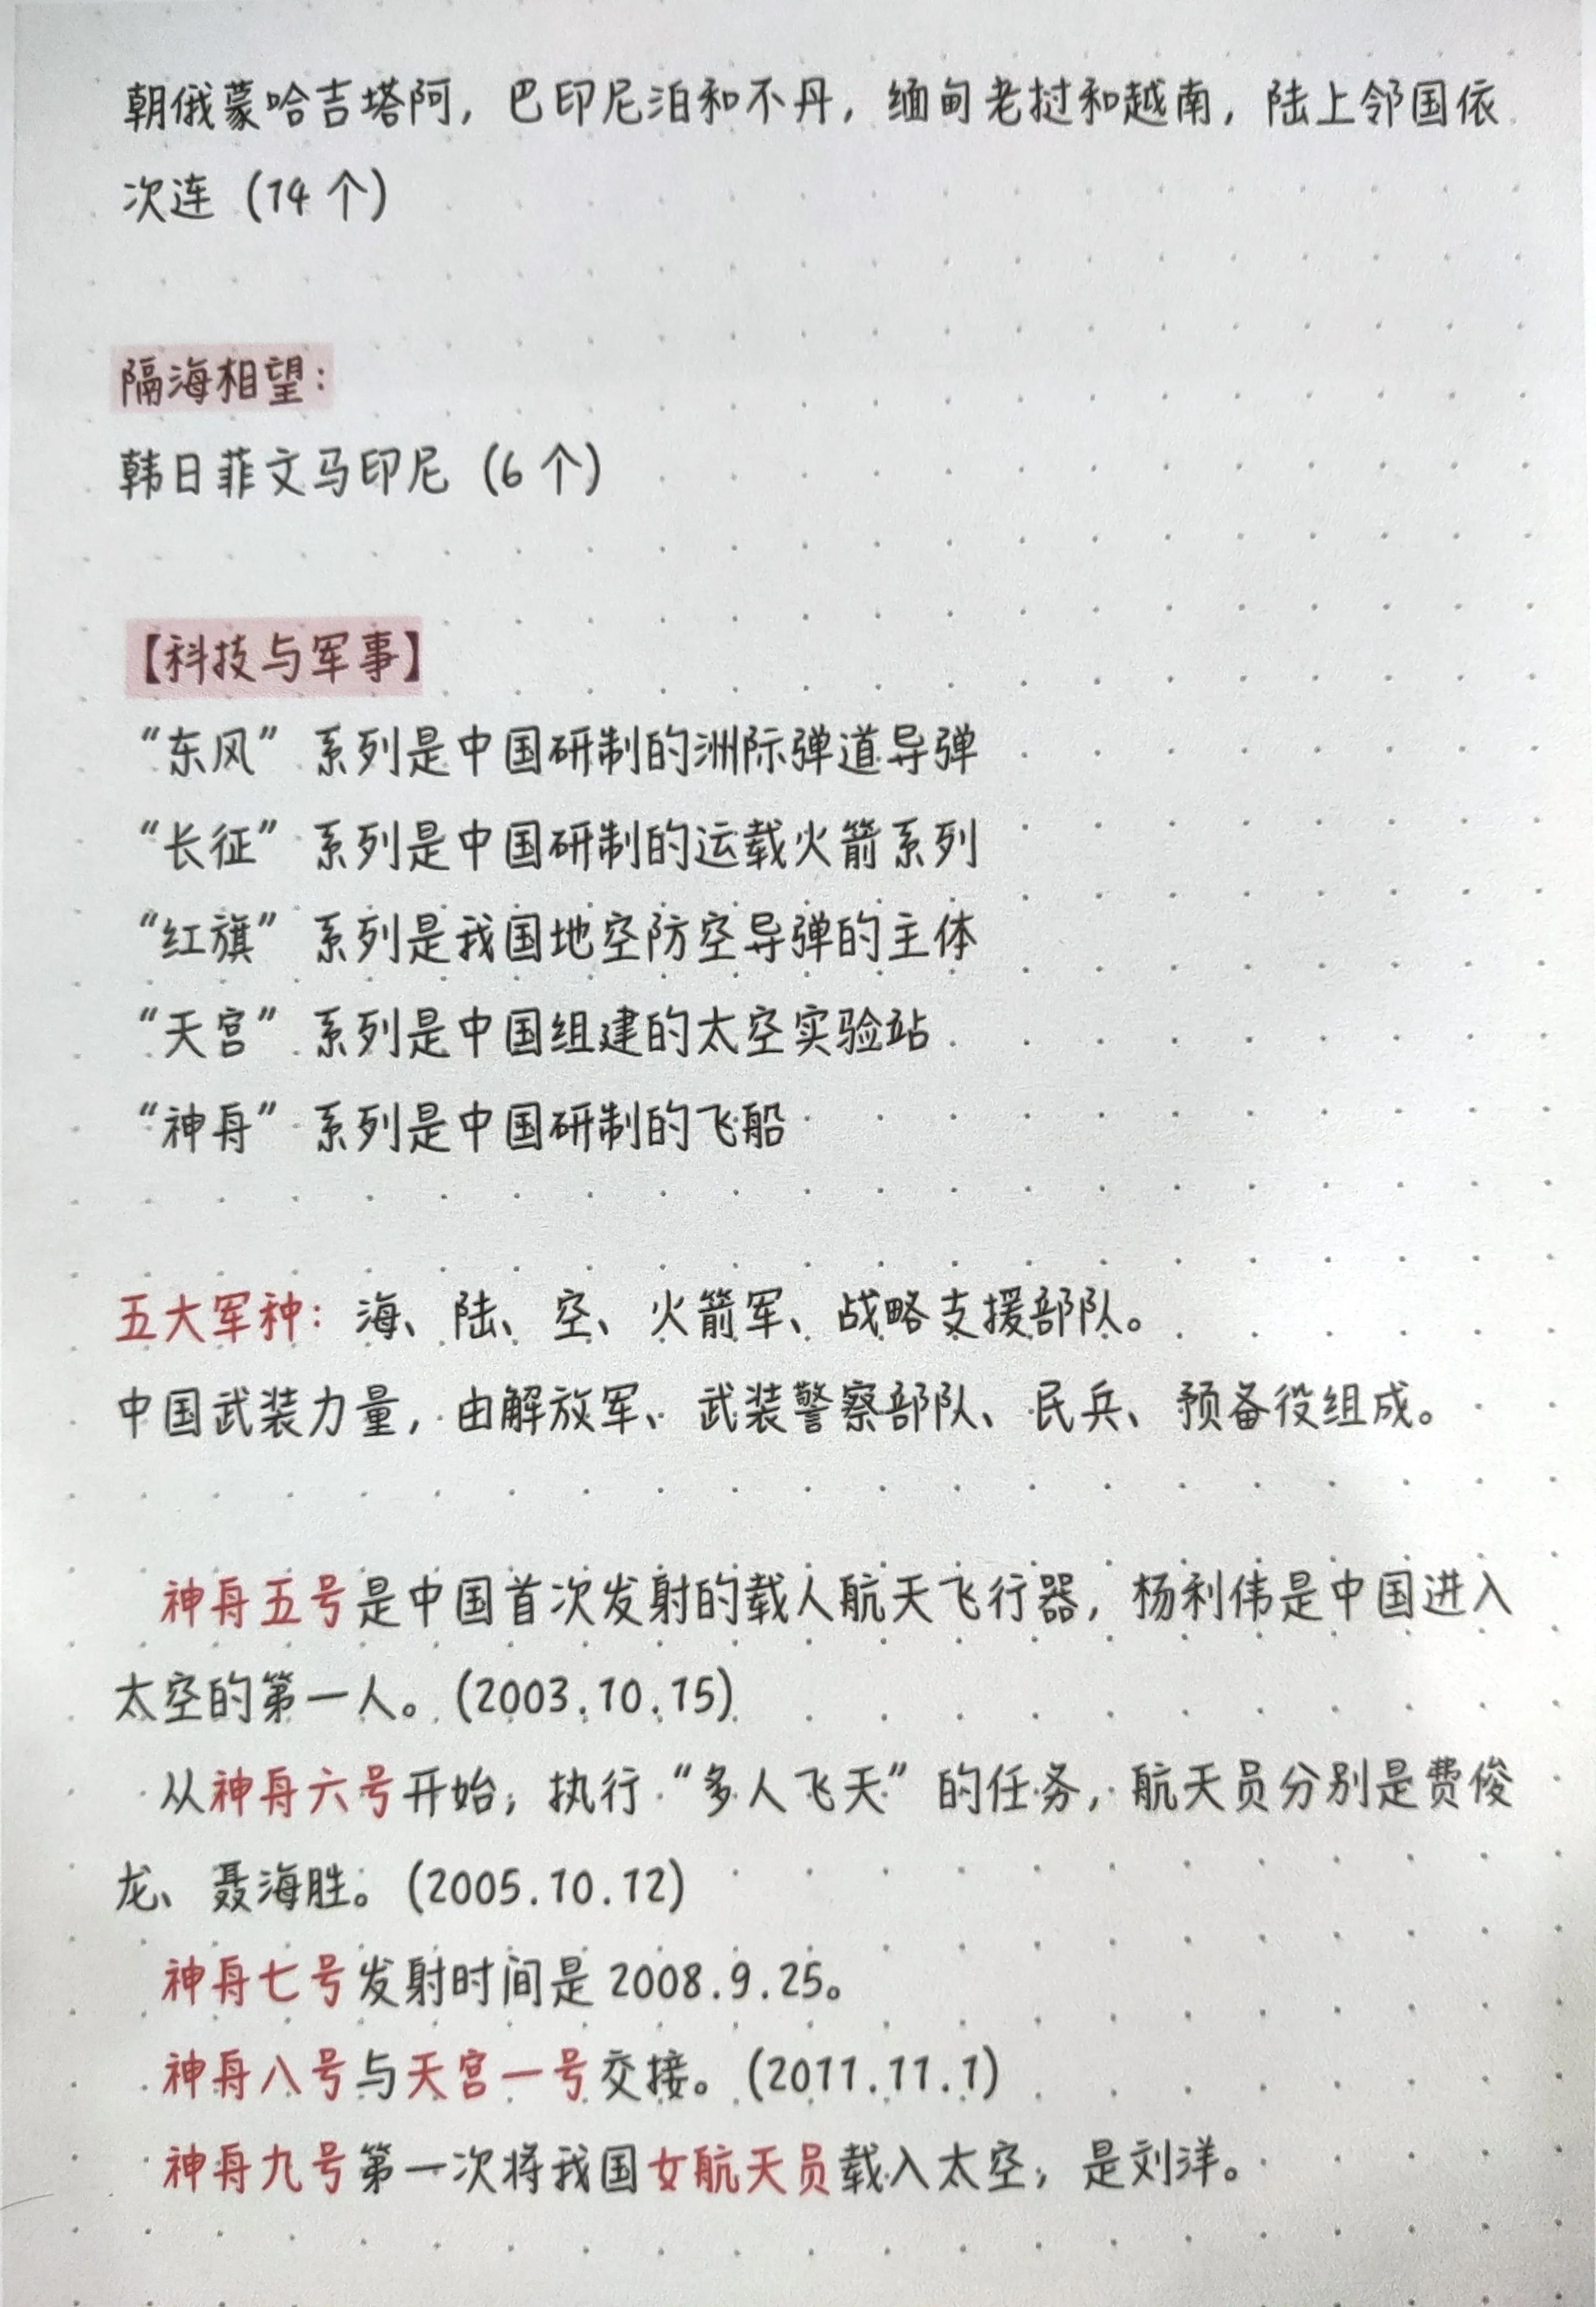 朝俄蒙哈吉塔阿，巴印尼泊和不丹，缅甸老挝和越南，陆上邻国依
次连（14 个）
隔海相望：
韩日菲文马印尼（6 个）
【科技与军事】
“东风”系列是中国研制的洲际弹道导弹
“长征”系列是中国研制的运载火箭系列
“红旗”系列是我国地空防空导弹的主体
“天宫”系列是中国组建的太空实验站
“神舟”系列是中国研制的飞船
五大军种：海、陆、空、火箭军、战略支援部队。
中国武装力量，由解放军、武装警察部队、民兵、预备役组成。
神舟五号是中国首次发射的载人航天飞行器，杨利伟是中国进入
太空的第一人。（2003.10.15）
从神舟六号开始，执行“多人飞天”的任务，航天员分别是费俊
龙、聂海胜。（2005.10.12）
神舟七号发射时间是 2008.9.25。
神舟八号与天宫一号交接。（2011.11.1）
神舟九号第一次将我国女航天员载入太空，是刘洋。